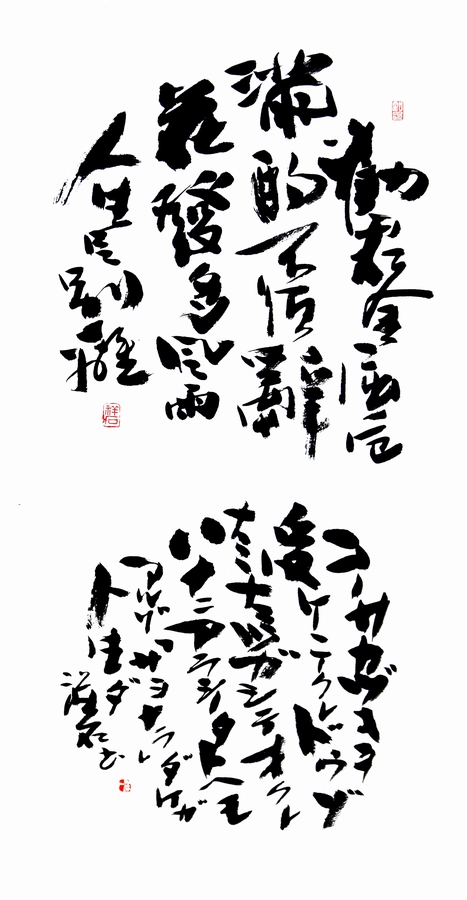 勧君金屈巵
満酌不須辭
花發多風雨
人生足別離
コノサカヅキヲ
受ケテクレドウゾ
ナミナミツガシテオクレ
ハナニアラシノタトヘモ
アルゾサヨナラダケガ
人生ダ